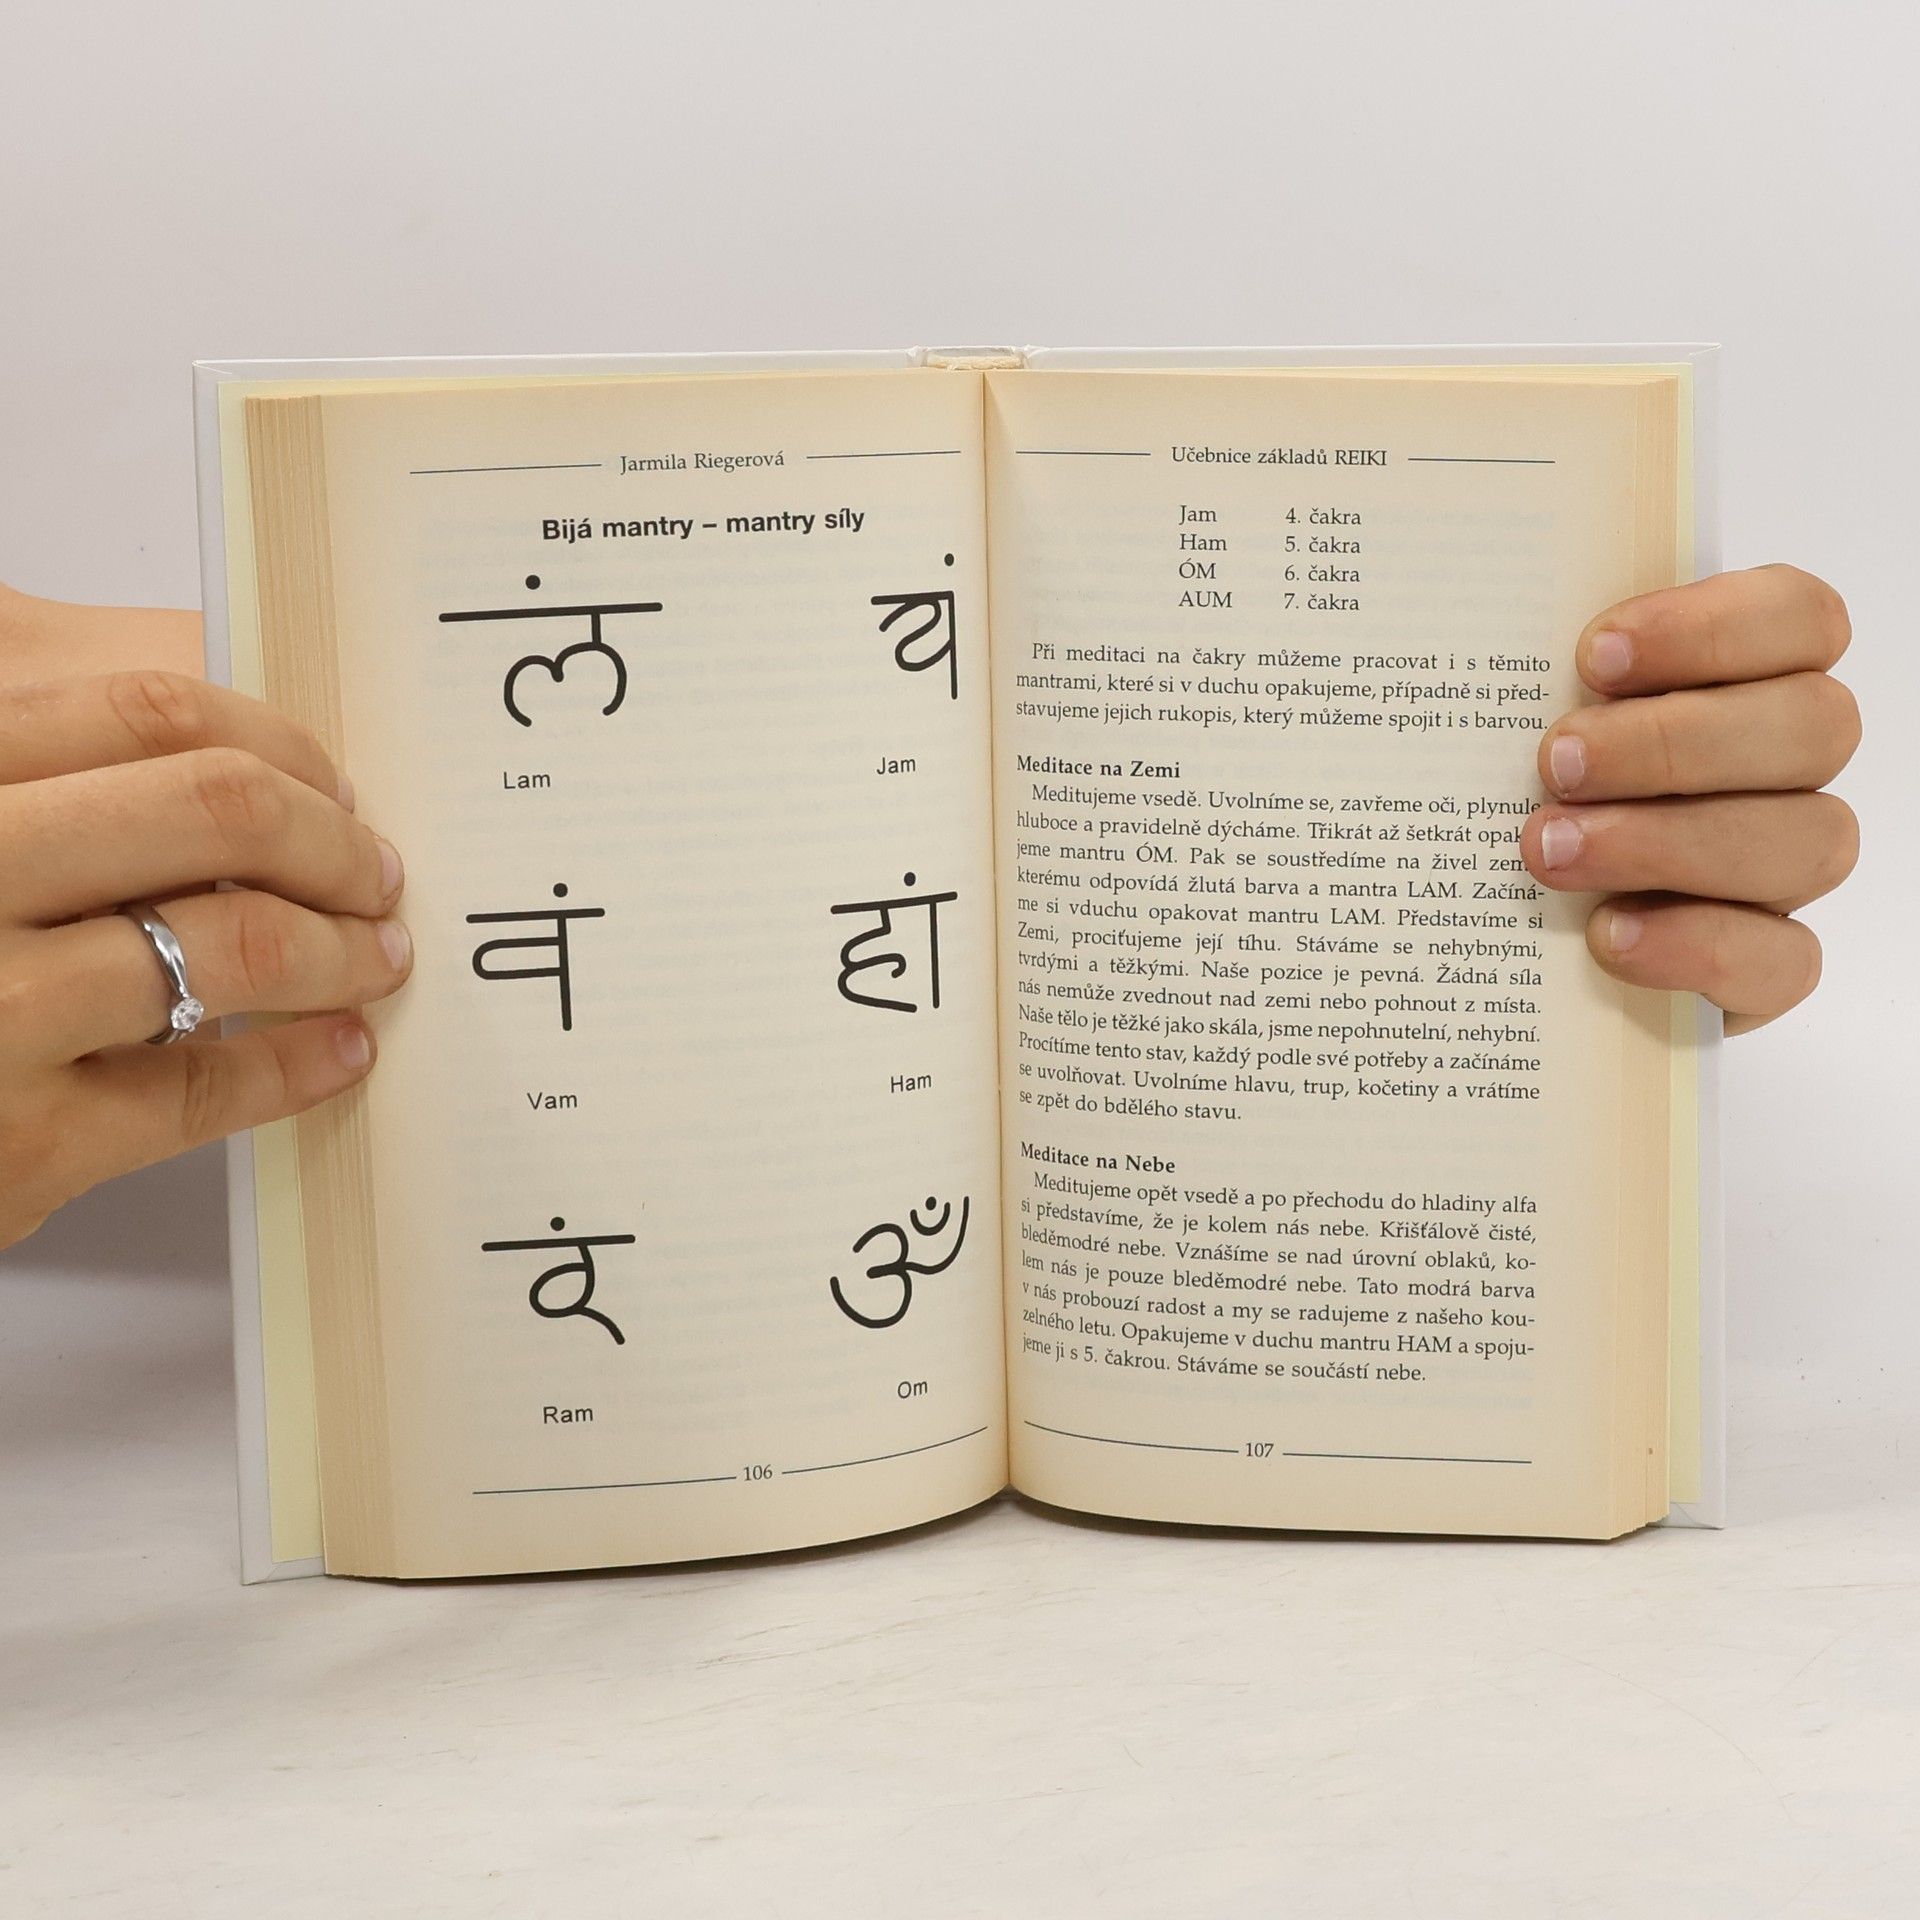 Jarmila Riegerová
Bijá mantry – mantry síly
लं यं
Lam Jam
वं हां
Vam Ham
रं ॐ
Ram Om
106
Učebnice základů REIKI
Jam 4. čakra
Ham 5. čakra
ÓM 6. čakra
AUM 7. čakra
Při meditaci na čakry můžeme pracovat i s těmito
mantrami, které si v duchu opakujeme, případně si před-
stavujeme jejich rukopis, který můžeme spojit i s barvou.
Meditace na Zemi
Meditujeme vsedě. Uvolníme se, zavřeme oči, plynule
hluboce a pravidelně dýcháme. Třikrát až šetkrát
jeme mantru ÓM. Pak se soustředíme na živel
kterému odpovídá žlutá barva a mantra LAM. Začíná-
me si vduchu opakovat mantru LAM. Představíme si
Zemi, prociťujeme její tíhu. Stáváme se nehybnými,
tvrdými a těžkými. Naše pozice je pevná. Žádná síla
nás nemůže zvednout nad zemi nebo pohnout z místa.
Naše tělo je těžké jako skála, jsme nepohnutelní, nehybní.
Procítíme tento stav, každý podle své potřeby a začínáme
se uvolňovat. Uvolníme hlavu, trup, kočetiny a vrátíme
se zpět do bdělého stavu.
Meditace na Nebe
Meditujeme opět vsedě a po přechodu do hladiny alfa
si představíme, že je kolem nás nebe. Křišťálově čisté,
bleděmodré nebe. Vznášíme se nad úrovní oblaků, ko-
lem nás je pouze bleděmodré nebe. Tato modrá barva
v nás probouzí radost a my se radujeme z našeho kou-
zelného letu. Opakujeme v duchu mantru HAM a spoju-
jeme ji s 5. čakrou. Stáváme se součástí nebe.
107